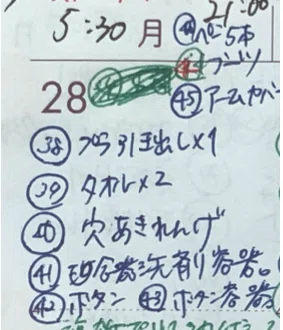 21:00
5:30 月 ㊹ペン5本
ブーツ
28 ㊺アームカバー
㊳ プラ引出し×1
㊴ タオル×2
㊵ 穴あきれんげ
㊶ 食器洗剤容器。
㊷ ボタン ㊸ ボタン容器